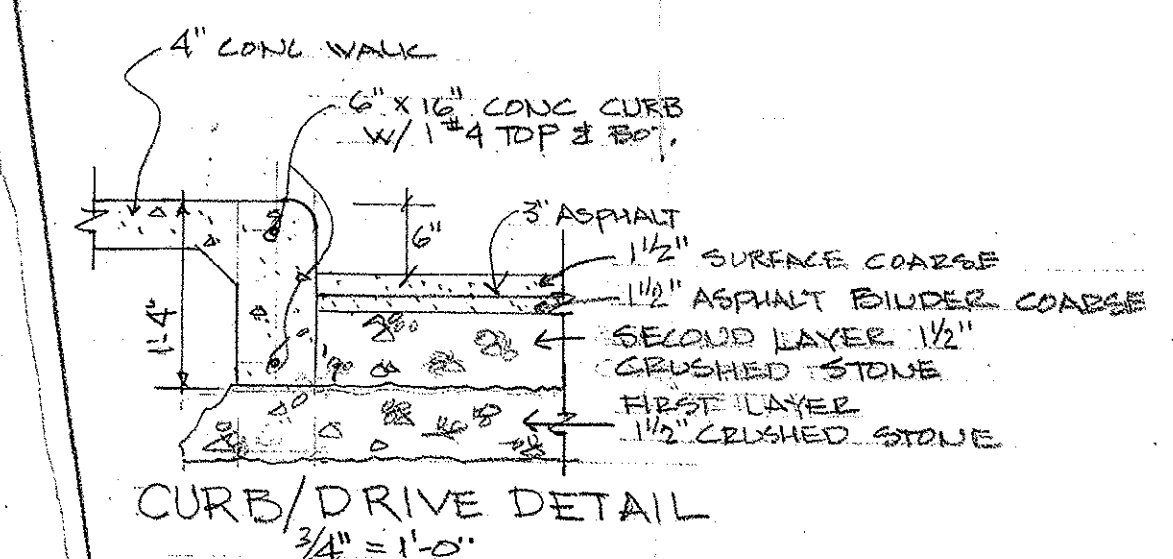 4" CONC WALK
6" X 16" CONC CURB
W/ 1 #4 TOP & BOT.
6"
3" ASPHALT
1 1/2" SURFACE COARSE
1 1/2" ASPHALT BINDER COARSE
SECOND LAYER 1 1/2"
CRUSHED STONE
FIRST LAYER
1 1/2" CRUSHED STONE
1'-4"
CURB/DRIVE DETAIL
3/4" = 1'-0"